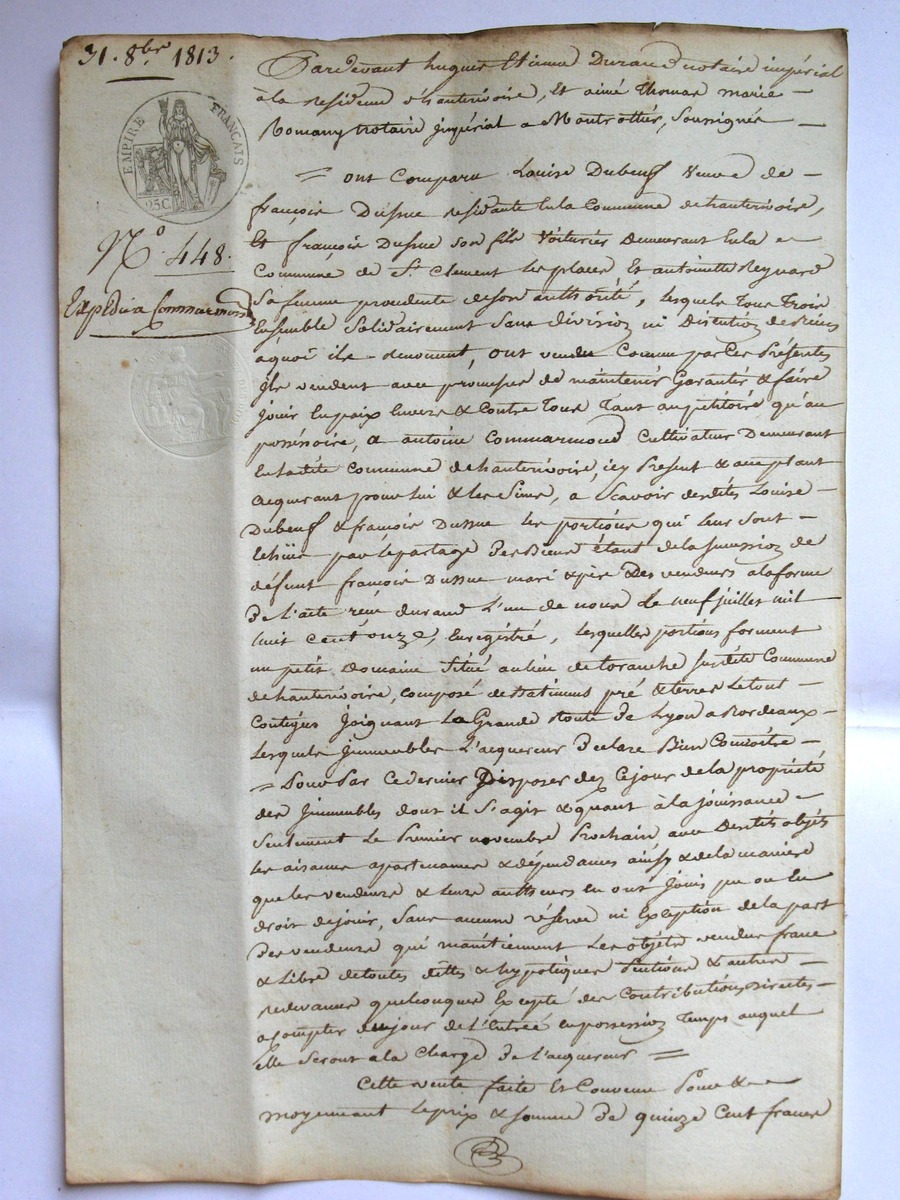 31. 8bre 1813.
EMPIRE FRANÇAIS
25 C.
No. 448.
Expédié a Commarmond
Pardevant hugues Etienne Durand notaire impérial
à la residence d'hauterivoire, Et aimé thomas marie
Romany notaire impérial a Montrottier, Soussignés
= ont Comparu Louise Dubeuf Veuve de
françois Dussue residante En la Commune d'hauterivoire,
Et françois Dussue son fils Voiturier Demeurant En la
Commune de St. Clement les places Et antoinette Reynard
Sa femme procedente de son authorité, lesquels Tous Trois
Ensemble Solidairement Sans division ni Discution de biens
àquoi ils renoncent, ont vendu Comme par Ces Présentes
ils vendent avec promesse de maintenir Garantir & faire
jouir En paix Envers & Contre Tous Tant au petitoire qu'au
possessoire, a antoine Commarmond Cultivateur Demeurant
En ladite Commune d'hauterivoire, icy Présent & acceptant
acquerant pour lui & les Siens, a Scavoir desdits Louise
Dubeuf & françois Dussue les portions qui Leur Sont
Echües par Le partage des Biens étant de la succession de
défunt françois Dussue mari & père Des vendeurs a la forme
De L'acte reçu durand L'un de nous Le neuf juillet mil
huit Cent onze, Enregistré, lesquelles portions forment
un petit Domaine Situé au lieu de toranche susdite Commune
d'hauterivoire, composé de batimens pré & terres Le tout
Contigus Joignant La Grande Route de Lyon a Bordeaux
Lesquels Immeubles L'acquereur Declare Bien Connoitre
= Pour Par Ce dernier Disposer dez Ce jour de la propriété
des Immeubles dont il S'agit & quant à la jouissance
Seulement Le Premier novembre Prochain avec Desdits objets
les aisances apartenances & dépendances ainsy & de la maniere
que les vendeurs & leurs autheurs En ont Jouis pu ou Eu
droit de jouir, Sans aucune réserve ni Exception de la part
Des vendeurs qui maintiennent Les objets vendus francs
& Libre de toutes dettes & hypotèques Pentions & autres
redevances quelconques Excepté des Contributions directes
a Compter du jour de L'Entrée en possession Temps auquel
Elle Seront a la Charge De l'acquereur =
Cette vente faite Et Convenue Pour &
moyennant le prix & somme De quinze Cent francs